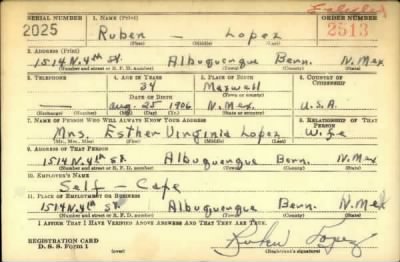 SERIAL NUMBER 1. NAME (Print) ORDER NUMBER
2025 Ruben — Lopez 2513
(First) (Middle) (Last)
2. ADDRESS (Print)
1514 N. 4th St. Albuquerque Bern. N. Mex
(Number and street or R. F. D. number) (Town) (County) (State)
3. TELEPHONE 4. AGE IN YEARS 5. PLACE OF BIRTH 6. COUNTRY OF CITIZENSHIP
34 Maxwell
DATE OF BIRTH (Town or county)
— Aug. 25 1906 N. Mex. U.S.A.
(Exchange) (Number) (Mo.) (Day) (Yr.) (State or country)
7. NAME OF PERSON WHO WILL ALWAYS KNOW YOUR ADDRESS 8. RELATIONSHIP OF THAT PERSON
Mrs. Esther Virginia Lopez Wife
(Mr., Mrs., Miss) (First) (Middle) (Last)
9. ADDRESS OF THAT PERSON
1514 N. 4th St. Albuquerque Bern. N. Mex
(Number and street or R. F. D. number) (Town) (County) (State)
10. EMPLOYER'S NAME
Self — Cafe
11. PLACE OF EMPLOYMENT OR BUSINESS
1514 N. 4th St. Albuquerque Bern. N. Mex
(Number and street or R. F. D. number) (Town) (County) (State)
I AFFIRM THAT I HAVE VERIFIED ABOVE ANSWERS AND THAT THEY ARE TRUE.
REGISTRATION CARD
D. S. S. Form 1 (over) Ruben Lopez
(Registrant's signature)